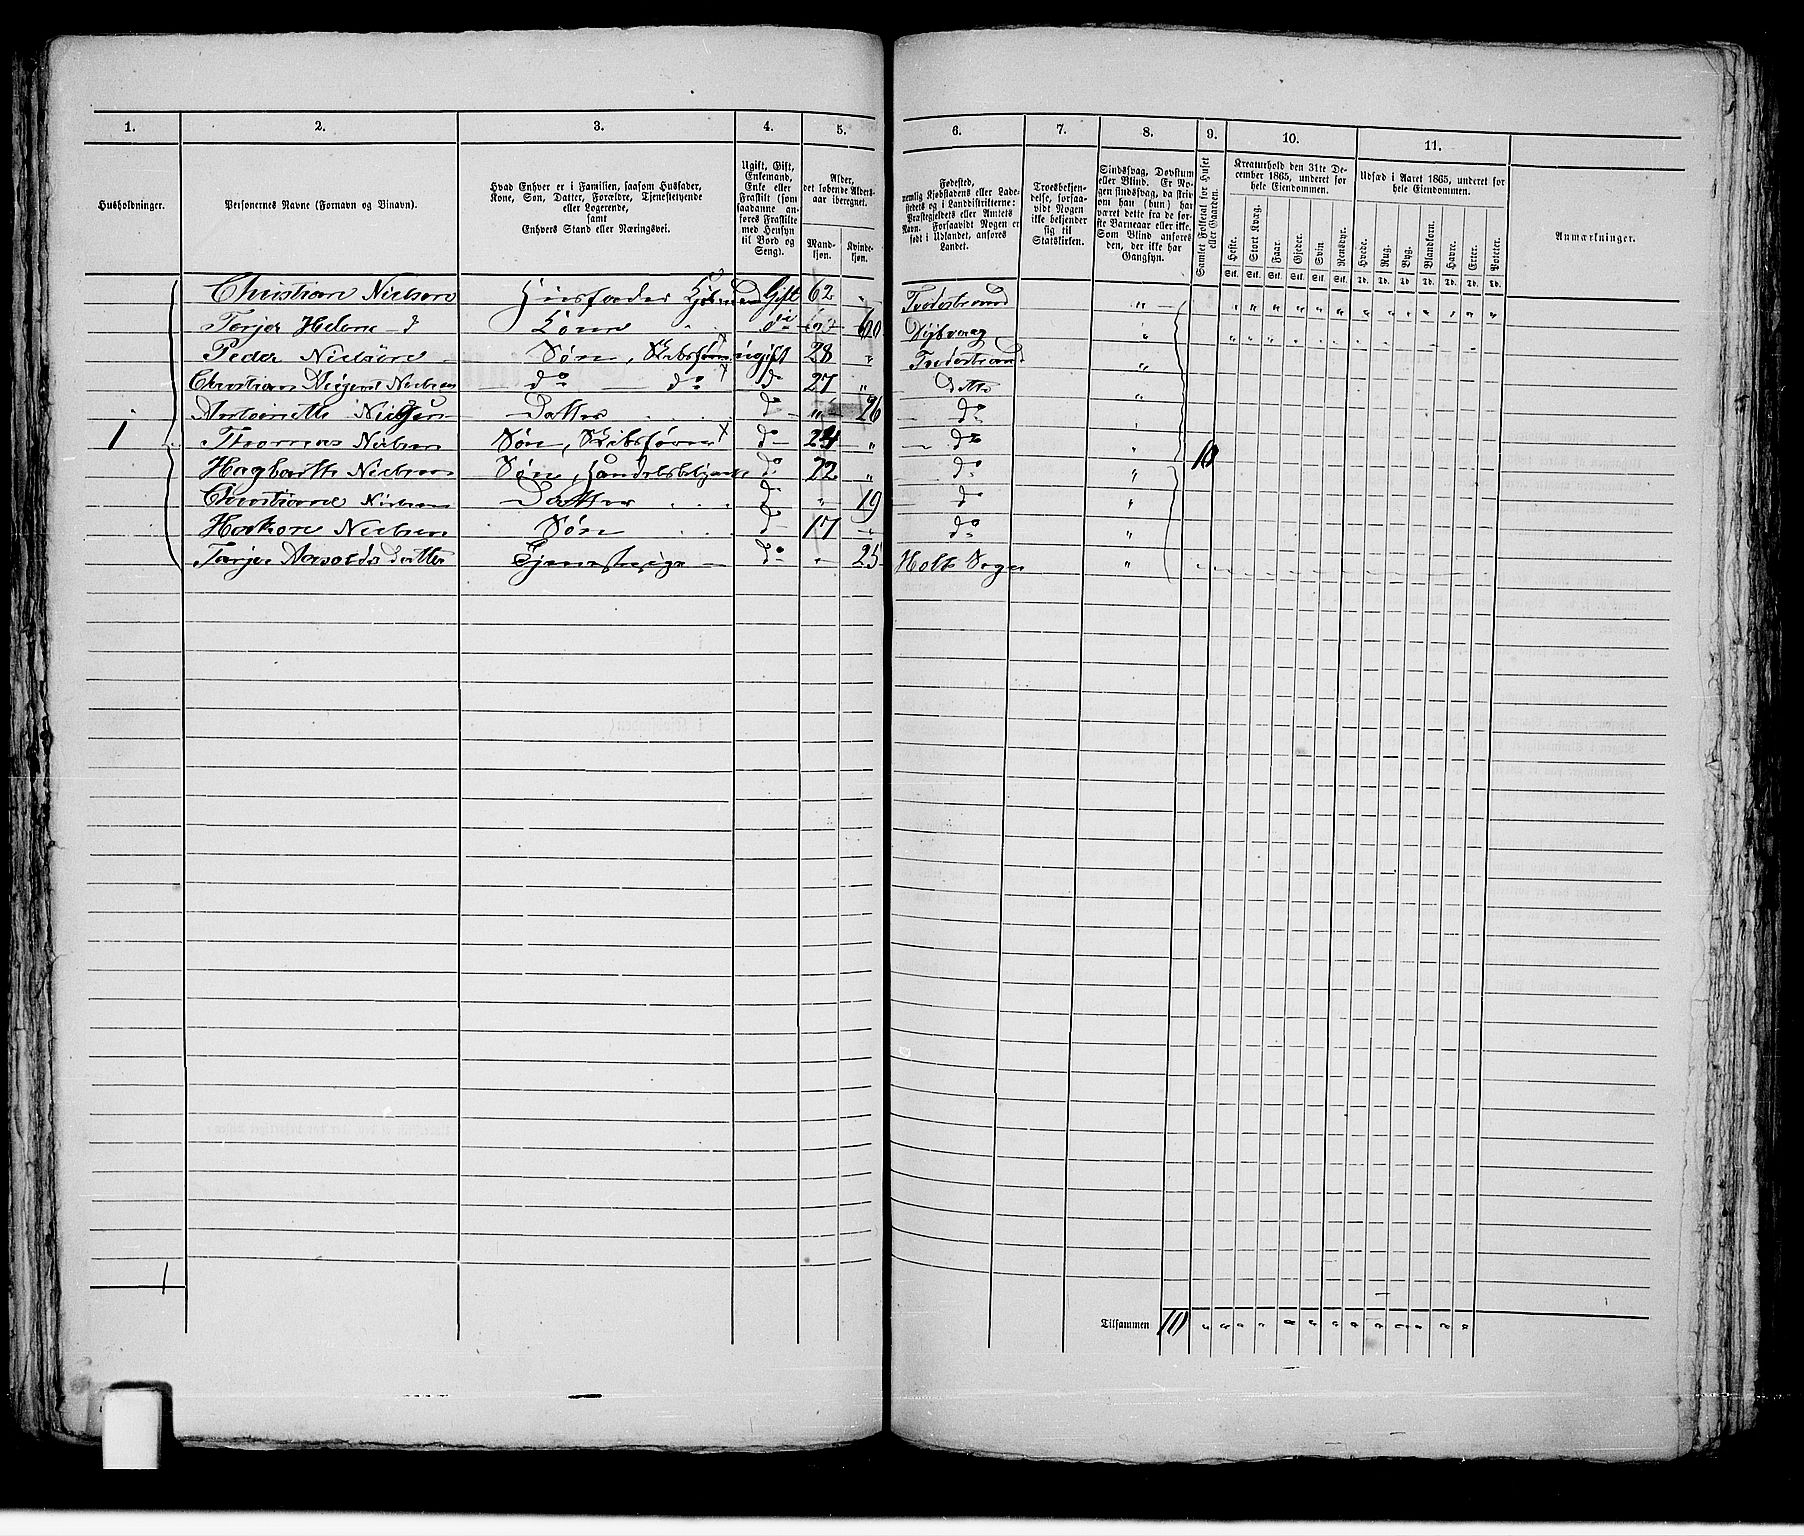 1. 2. 3. 4. 5. 6. 7. 8. 9. 10. 11.
Husholdninger.
Personernes Navne (Fornavn og Binavn).
Hvad Enhver er i Familien, saasom Husfader,
Kone, Søn, Datter, Forældre, Tjenestetyende
eller Logerende,
samt
Enhvers Stand eller Næringsvei.
Ugift, Gift,
Enkemand,
Enke eller
Fraskilt (som
saadanne an-
føres Fraskilte
med Hensyn
til Bord og
Seng).
Alder,
det løbende Alders-
aar iberegnet.
Mand-
kjøn.
Kvinde-
kjøn.
Fødested,
nemlig Kjøbstadens eller Lade-
stedets og i Landdistrikterne:
Præstegjeldets eller Amtets
Navn. Forsaavidt Nogen er
født i Udlandet, anføres
Landet.
Troesbekjen-
delse, forsaa-
vidt Nogen
ikke bekjender
sig til
Statskirken.
Sindssvag, Døvstum
eller Blind. Er No-
gen sindssvag, da skri-
om han (hun) har
været dette fra de for-
ste Barneaar eller ikke.
Som Blind anføres
den, der ikke har
Gangsyn.
Samlet Folketal for Huset
eller Gaarden.
Kreaturhold den 31te De-
cember 1865, underet for
hele Eiendommen.
Heste. Stort Kvæg. Faar. Gjeder. Svin Rensdyr.
Stk. Stk. Stk. Stk. Stk. Stk.
Udsæd i Aaret 1865, underet for
hele Eiendommen.
Hvede. Rug. Byg. Blandkorn. Havre. Erter. Poteter.
Td. Td. Td. Td. Td. Td. Td.
Anmærkninger.
Christian Nielsen Huusfader Gift 62 Tvedestrand
Terjer Helene do Kone do 60 Dybvaag
Peder Nielsen Søn, Skibsfører ugift 28 " Tvedestrand
Christian Nielsen do do do 27 " Ditto
Antoinette Nielsen Datter do " 26 do
1 Thomas Nielsen Søn, Skibsfører do 24 " do 10
Hagbarth Nielsen Søn, Handelsbetjent do 22 " do
Christiane Nielsen Datter do " 19 do
Haakon Nielsen Søn do 17 " do
Terjer Datter Tjenestepige do " 25 Holt Sogn
1
Tilsammen 10